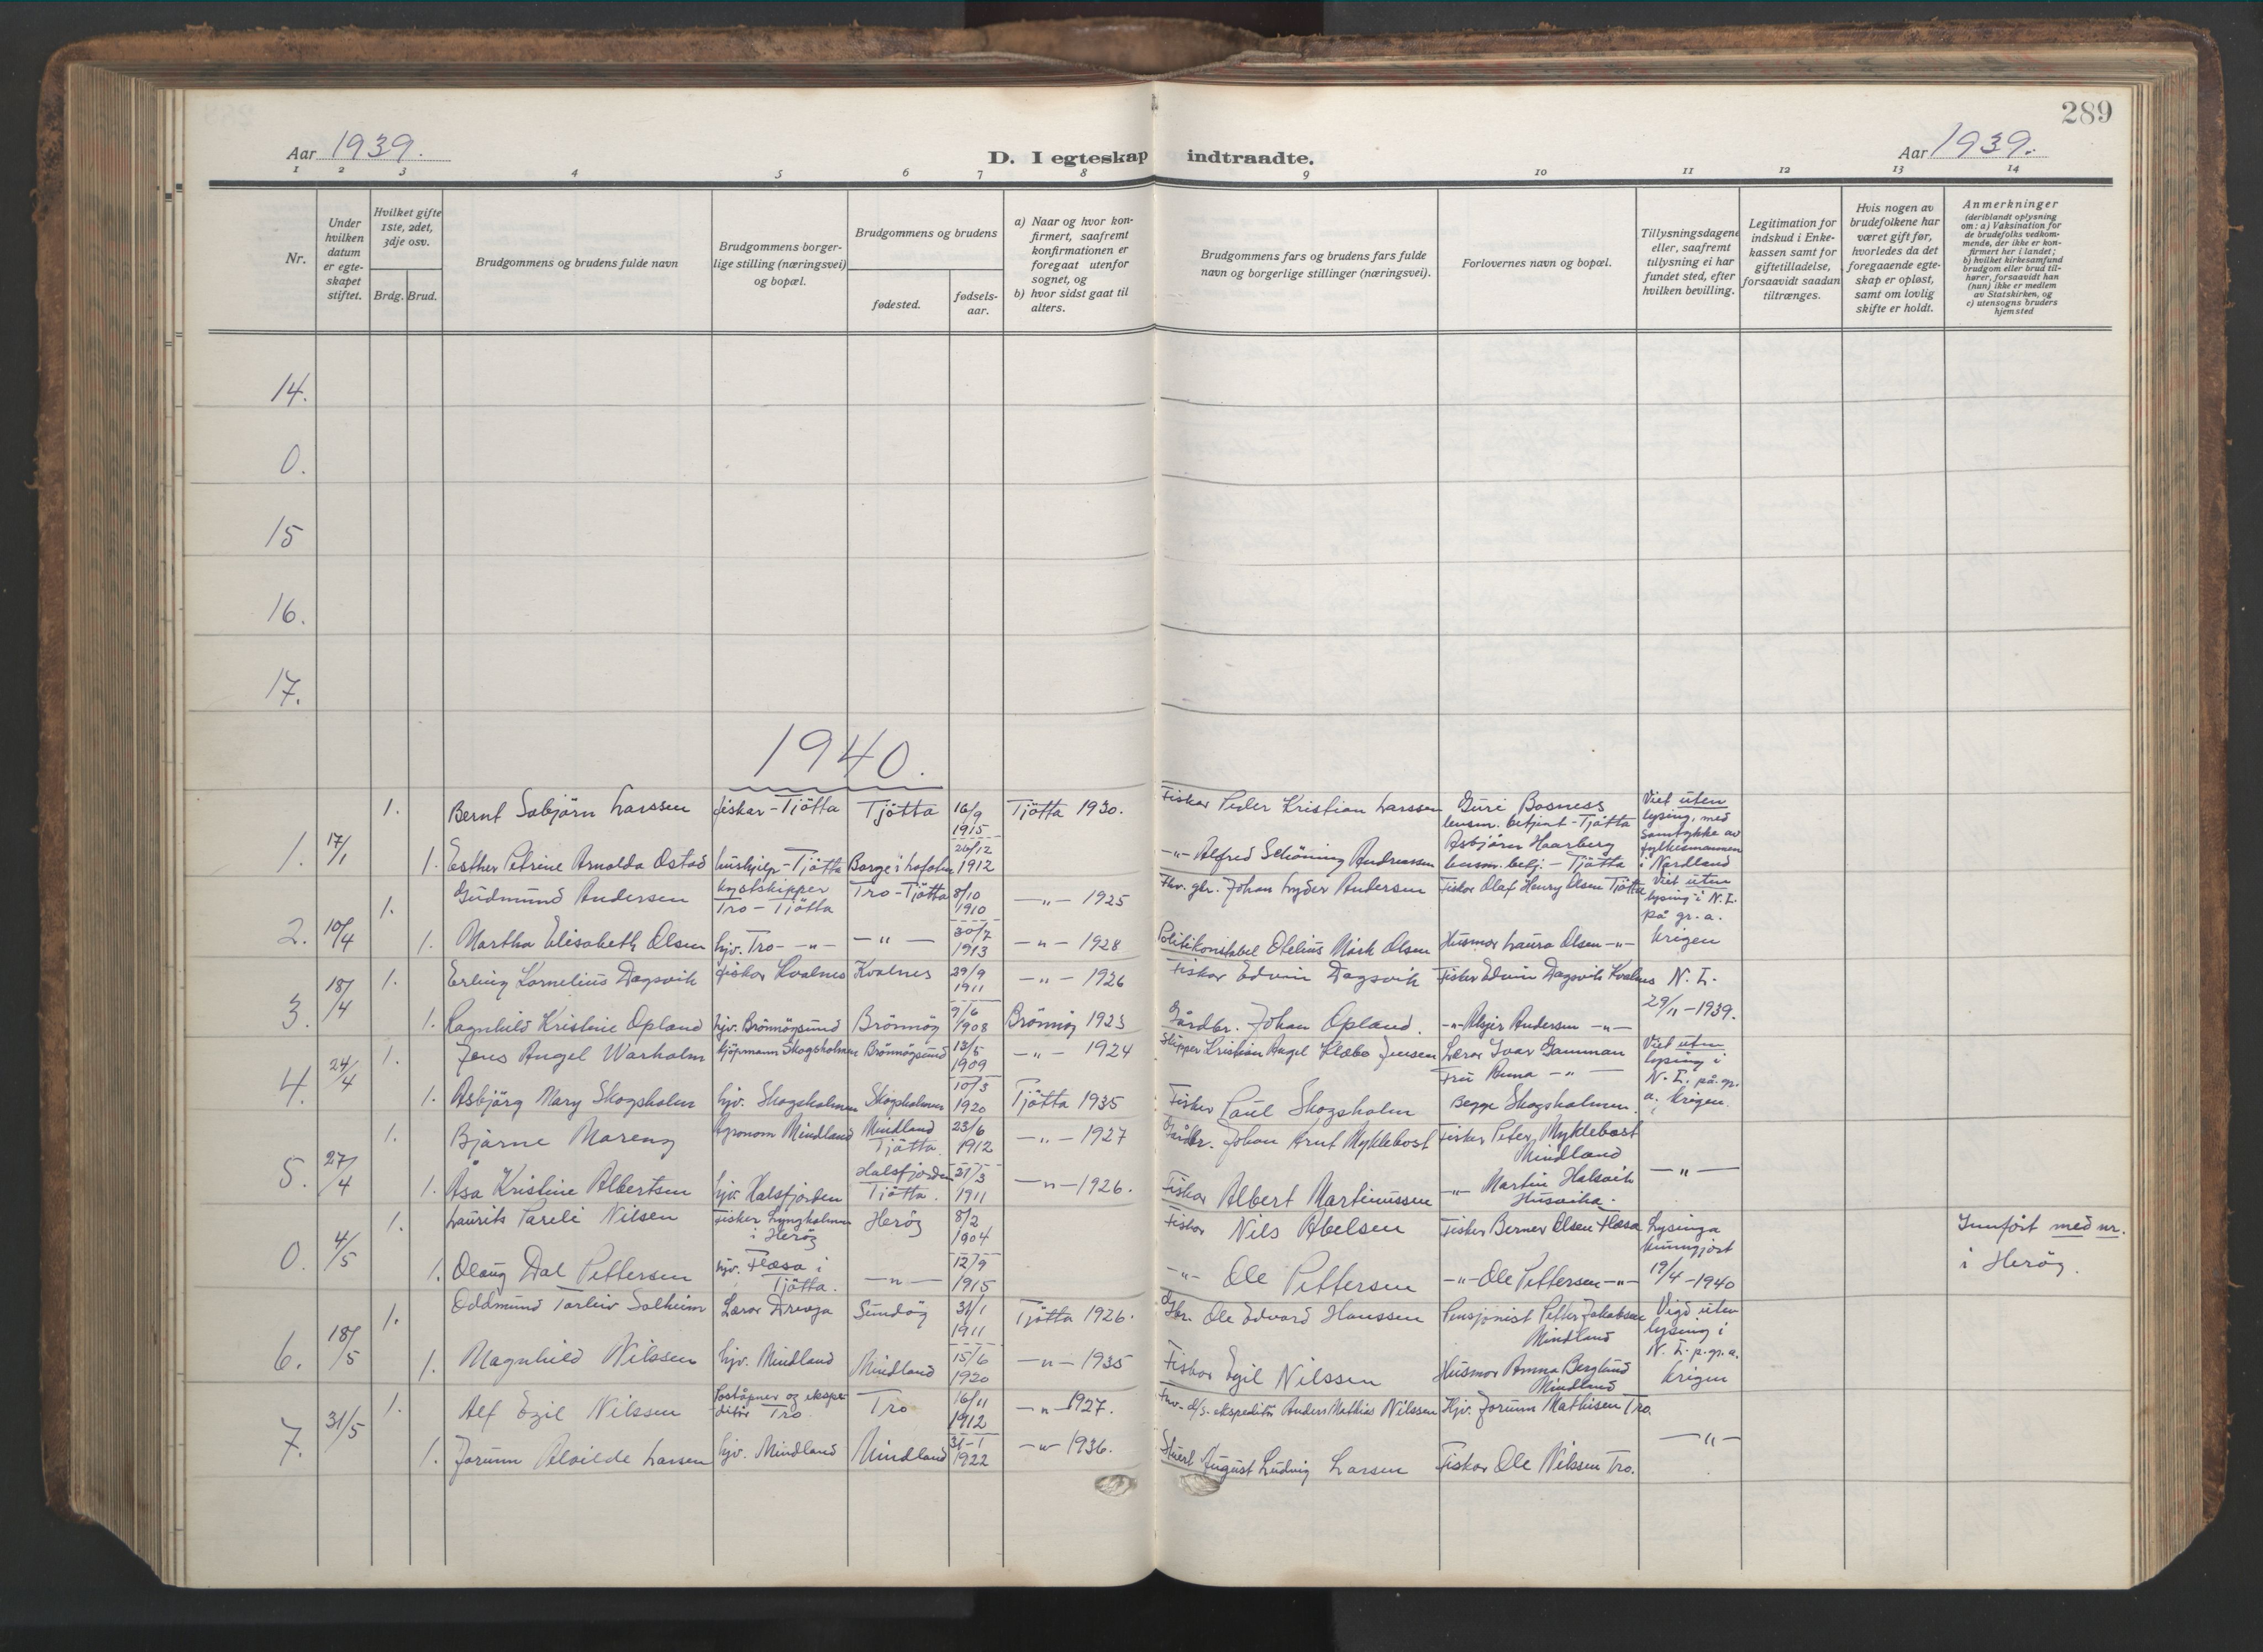 289
Aar 1939.
D. I egteskap indtraadte.
Aar 1939.
1 2 3 4 5 6 7 8 9 10 11 12 13 14
Nr.
Under hvilken datum er egte-skapet stiftet.
Hvilket gifte 1ste, 2det, 3dje osv.
Brdg. Brud.
Brudgommens og brudens fulde navn
Brudgommens borger-lige stilling (næringsvei) og bopæl.
Brudgommens og brudens
fødested.
fødsels-aar.
a) Naar og hvor kon-firmert, saafremt konfirmationen er foregaat utenfor sognet, og
b) hvor sidst gaat til alters.
Brudgommens fars og brudens fars fulde navn og borgerlige stillinger (næringsvei).
Forlovernes navn og bopæl.
Tillysningsdagene eller, saafremt tillysning ei har fundet sted, efter hvilken bevilling.
Legitimation for indskud i Enke-kassen samt for giftetilladelse, forsaavidt saadan tiltrænges.
Hvis nogen av brudefolkene har været gift før, hvorledes da det foregaaende egte-skap er opløst, samt om lovlig skifte er holdt.
Anmerkninger
(deriblandt oplysning om: a) Vaksination for de brudefolks vedkom-mende, der ikke er kon-firmert her i landet; b) hvilket kirkesamfund brudgom eller brud til-hører, forsaavidt han (hun) ikke er medlem av Statskirken, og c) utensogns bruders hjemsted
14.
0.
15
16.
17.
1940.
1. 17/1
1. Bernt Sabjörn Larssen fiskar - Tjötta Tjötta 16/9 1915 Tjötta 1930. Fisker Peder Kristian Larssen Guri Bosness lensm. betjent - Tjötta Viet uten lysing, med samtykke av fylkesmannen i Nordland
1. Esther Petrine Arnolda Ostad hushjelp - Tjötta Borge i Lofoten 26/12 1912 -"- Alfred Schöning Andreassen Asbjörn Haarberg lensm. betj. - Tjötta
2. 10/4
1. Gudmund Andersen kystskipper Tro - Tjötta Tro - Tjötta 8/10 1910 -"- 1925 Fhv. gbr. Johan Lyder Andersen Fisker Olaf Henry Olsen Tjötta Viet uten lysing i N.L. på gr. a. krigen
1. Martha Elisabeth Olsen hjv. Tro -"- -"- 30/7 1913 -"- 1928 Politikonstabel Otelius Mörk Olsen Husmor Laura Olsen -"-
3. 18/4
1. Erling Kornelius Dagsvik fisker Kvalnes Kvalnes 29/9 1911 -"- 1926 Fisker Edvin Dagsvik Fisker Edvin Dagsvik Kvalnes N. L. 29/11 - 1939.
1. Ragnhild Kristine Opland hjv. Brönnöysund Brönnöy 9/6 1908 Brönnöy 1923 Gårdbr. Johan Opland. -"- Asjer Andersen -"-
4. 24/4
1. Jens Angel Warholm kjöpmann Skogsholmen Brönnöysund 13/5 1909 -"- 1924 Skipper Kristian Angel Klæbo Jensen Lærer Ivar Gamman Viet uten lysing i N. L. på gr. a. krigen.
1. Asbjörg Mary Skogsholm hjv. Skogsholmen Skogsholmen 10/3 1920 Tjötta 1935 Fisker Paul Skogsholm Fru Anna -"- Begge Skogsholmen.
5. 27/4
1. Bjarne Mareng Agronom Mindland Mindland Tjötta. 23/6 1912 -"- 1927 Gårdbr. Johan Arnt Myklebost Fisker Peter Myklebost Mindland -"-
1. Åsa Kristine Albertsen hjv. Halsfjorden Halsfjorden Tjötta. 21/3 1911 -"- 1926. Fisker Albert Martinussen -"- Martin Halsvik Husvika.
0. 4/5
1. Laurits Pareli Nilsen Fisker Lyngholmen i Heröy Heröy 8/2 1904 Fisker Nils Abelsen Fisker Berner Olsen Flæsa Lysinga kunngjort 19/4 - 1940 Innfört med nr. i Heröy.
1. Olaug Dal Pettersen hjv. Flæsa i Tjötta. -"- 12/9 1915 -"- Ole Pettersen -"- Ole Pettersen -"-
6. 18/5
1. Oddmund Torleiv Solheim Lærer Drevja Sundöy 31/1 1911 Tjötta 1926. Gbr. Ole Edvard Hanssen Pensjonist Petter Jakobsen Mindland Vigd uten lysing i N. L. p. gr. a. krigen
1. Magnhild Nilssen hjv. Mindland Mindland 15/6 1920 -"- 1935 Fisker Egil Nilssen Husmor Anna Berglund Mindland
7. 31/5
1. Alf Egil Nilssen Poståpner og ekspeditör Tro Tro 16/11 1912 -"- 1927. Fhv. d/s. ekspeditör Anders Mathias Nilssen Hjv. Jorunn Mathisen Tro -"-
1. Jorunn Alvilde Larsen hjv. Mindland Mindland 31-1 1922 -"- 1936. August Ludvig Larsen Fisker Ole Nilssen Tro.